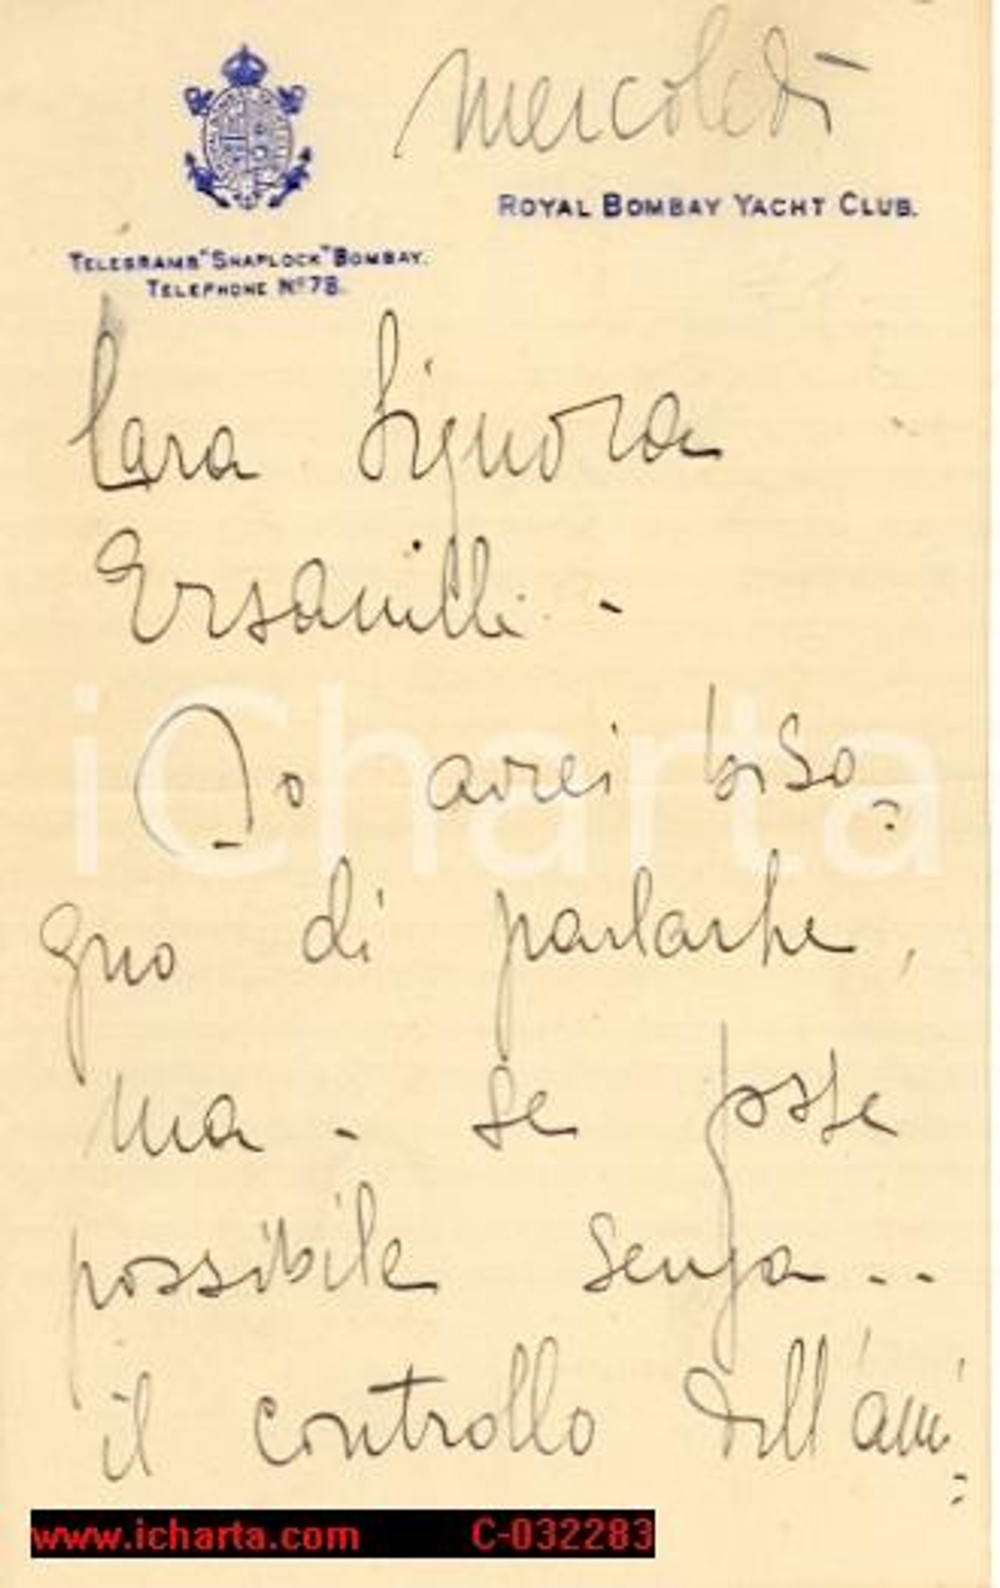 mercoledì
ROYAL BOMBAY YACHT CLUB.
TELEGRAMS "SHAPLOCK" BOMBAY.
TELEPHONE Nº 78.
Cara Signora
Ersanilli -
Io avrei biso=
gno di parlarle,
ma - se fosse
possibile senza ..
il controllo dell'ami=
iCharta
www.icharta.com C-032283